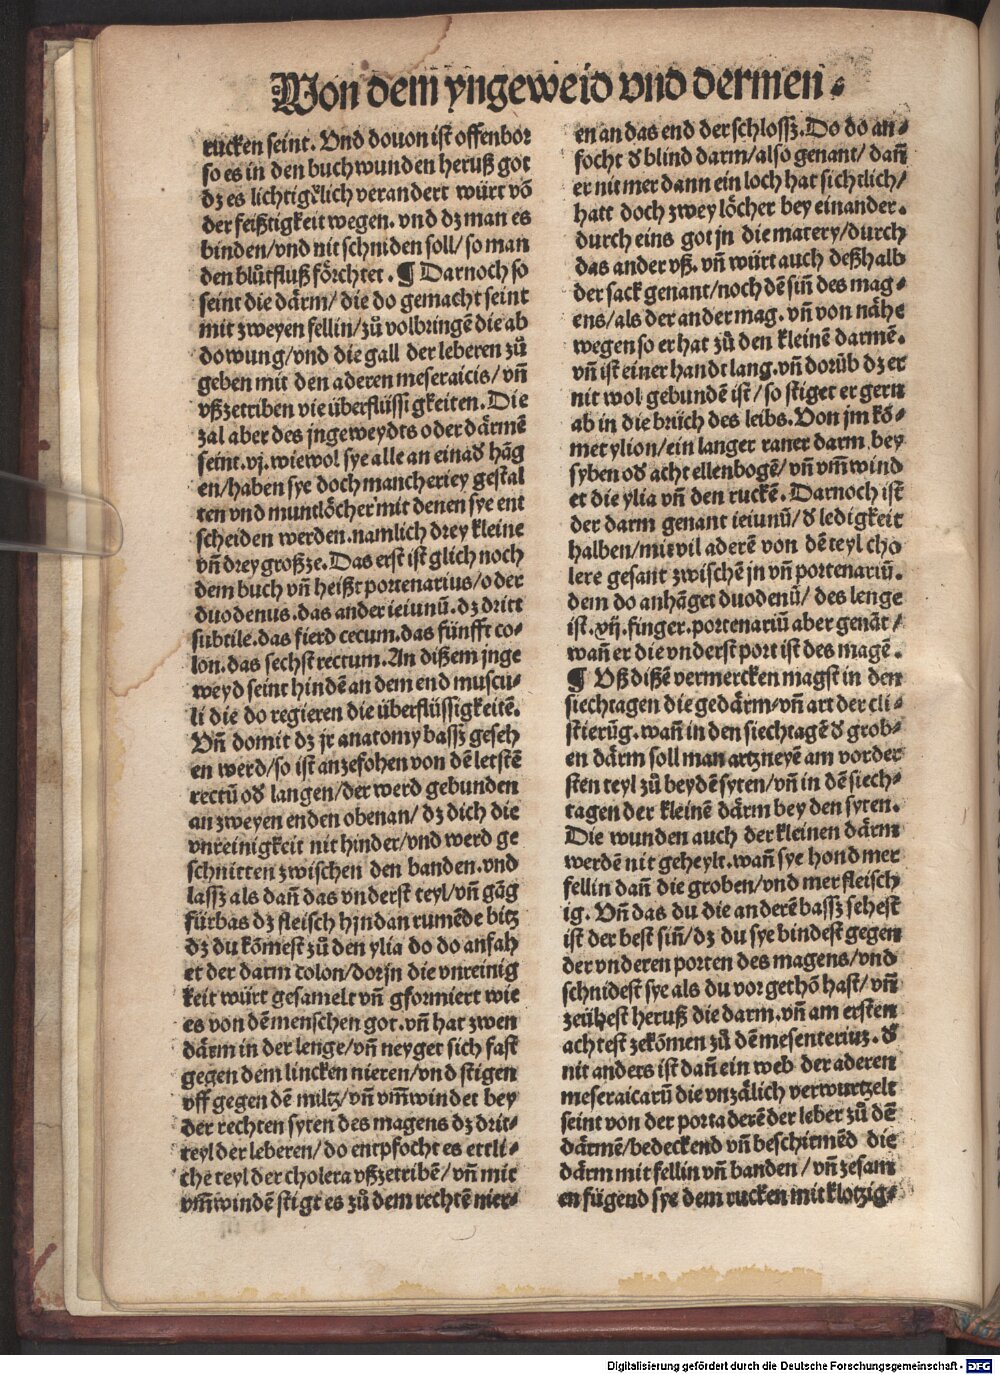 Von dem yngeweid vnd dermen.
rucken seint. Vnd douon ist offenbor
so es in den buch wunden heruß got
dz es lichtigklich verandert würt võ
der feißtigkeit wegen. vnd dz man es
binden/vnd nit schniden soll/so man
den blůtfluß förchtet. ¶ Darnoch so
seint die därm/die do gemacht seint
mit zweyen fellin/zů volbringẽ die ab
dowung/vnd die gall der leberen zů
geben mit den aderen meseraicis/vñ
vßzetriben vie überflüssigkeiten. Die
zal aber des jngeweydts oder därmẽ
seint.vj.wiewol sye alle an einad̕ häg
en/haben sye doch mancherley gestal
ten vnd muntlöcher mit denen sye ent
scheiden werden.namlich drey kleine
vñ drey großze. Das erst ist glich noch
dem buch vñ heißt portenarius/oder
duodenus.das ander ieiunũ.dz dritt
subtile.das fierd cecum.das fünfft co-
lon.das sechst rectum. An dißem jnge
weyd seint hindẽ an dem end muscu-
li die do regieren die überflüssigkeitẽ.
Vñ domit dz jr anatomy bassz geseh
en werd/so ist anzefohen von dẽ letstẽ
rectũ od̕ langen/der werd gebunden
an zweyen enden obenan/dz dich die
vnreinigkeit nit hinder/vnd werd ge
schnitten zwischen den banden.vnd
lassz als dañ das vnderst teyl/vñ gäg
fürbas dz fleisch hjndan rumẽde bitz
dz du kõmest zů den ylia do do anfah
et der darm colon/dorjn die vnreinig
keit würt gesamelt vñ gformiert wie
es von dẽ menschen got.vñ hat zwen
därm in der lenge/vñ neyget sich fast
gegen dem lincken nieren/vnd stigen
vff gegen dẽ miltz/vñ vm̃windet bey
der rechten syten des magens dz drit-
teyl der leberen/do entpfocht es ettli-
che teyl der cholera vßzetribẽ/vñ mit
vm̃windẽ stigt es zů dem rechtẽ nier-
en an das end der schlossz. Do do an-
focht d̕ blind darm/also genant/dañ
er nit mer dann ein loch hat sichtlich/
hatt doch zwey löcher bey einander.
durch eins got jn die matery/durch
das ander vß. vñ würt auch deßhalb
der sack genant/noch dẽ siñ des mag-
ens/als der ander mag. vñ von nähe
wegen so er hat zů den kleinẽ darmẽ.
vñ ist einer handt lang.vñ dorüb dz er
nit wol gebundẽ ist/so stiget er gern
ab in die brüch des leibs. Von jm kõ-
met ylion/ein langer raner darm bey
syben od̕ acht ellenbogẽ/vñ vm̃wind
et die ylia vñ den ruckẽ. Darnoch ist
der darm genant ieiunũ/d̕ ledigkeit
halben/mit vil aderẽ von dẽ teyl cho
lere gesant zwischẽ jn vñ portenariũ.
dem do anhãget duodenũ/des lenge
ist.xij.finger.portenariũ aber genãt/
wañ er die vnderst port ist des magẽ.
¶ Vß dißẽ vermercken magst in den
siechtagen die gedärm/vñ art der cli-
stierũg. wañ in den siechtagẽ d̕ grob-
en därm soll man artzneyẽ am vorder
sten teyl zů beydẽ syten/vñ in dẽ siech-
tagen der kleinẽ därm bey den syten.
Die wunden auch der kleinen därm
werdẽ nit geheylt.wañ sye hond mer
fellin dañ die groben/vnd mer fleisch
ig. Vñ das du die anderẽ bassz sehest
ist der best siñ/dz du sye bindest gegen
der vnderen porten des magens/vnd
schnidest sye als du vor gethõ hast/vñ
zeühest heruß die darm.vñ am ersten
achtest zekõmen zů dẽ mesenteriuz. d̕
nit anders ist dañ ein web der aderen
meseraicarũ die vnzälich verwurtzelt
seint von der port aderẽ der leber zů dẽ
därmẽ/bedeckend vñ beschirmẽd die
därm mit fellin vñ banden/vñ zesam
en fügend sye dem rucken mit klotzig-
Digitalisierung gefördert durch die Deutsche Forschungsgemeinschaft - DFG